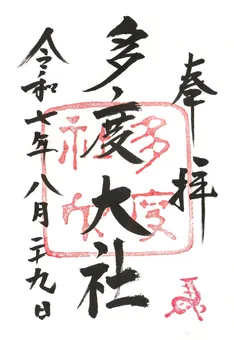 奉拝
多度大社
令和七年八月二十九日
多度大社